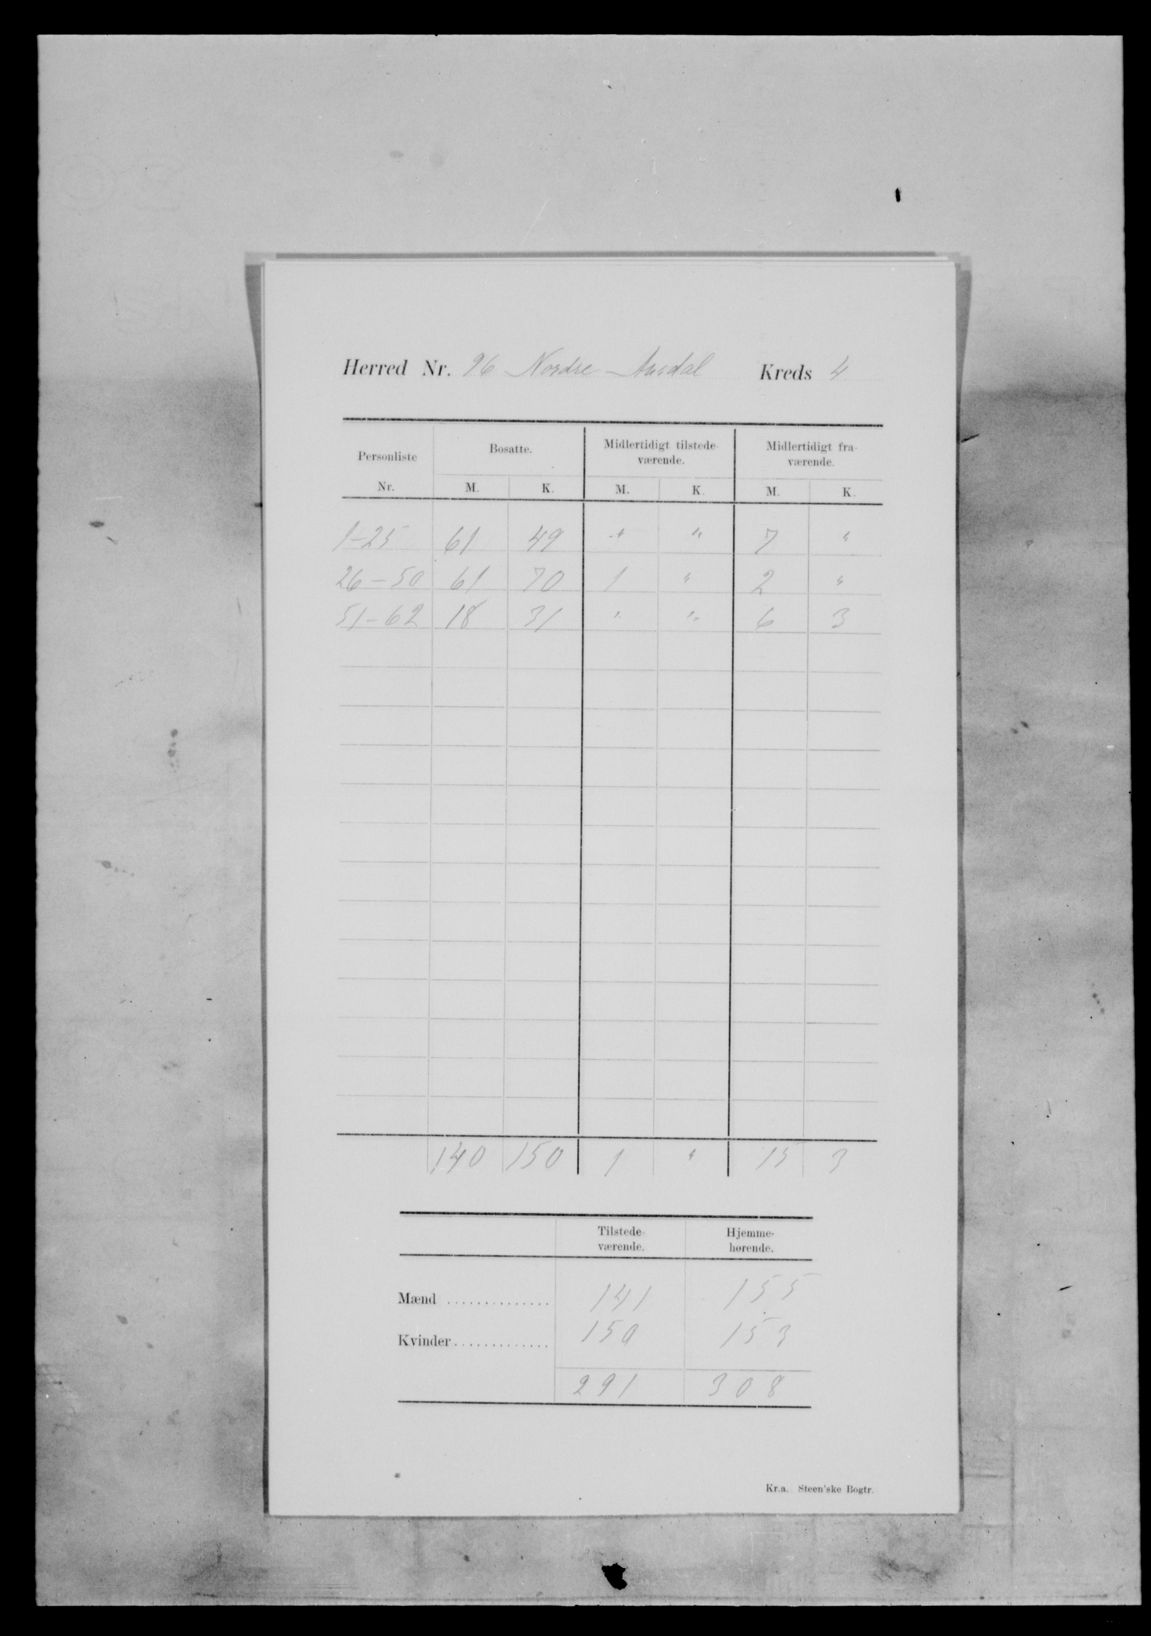 Herred Nr. 96 Nordre Aurdal Kreds 4
Personliste Bosatte. Midlertidigt tilstede- Midlertidigt fra-
værende. værende.
Nr. M. K. M. K. M. K.
1-25 61 49 " " 7 "
26-50 61 70 1 " 2 "
51-62 18 31 " " 6 3
140 150 1 " 15 3
Tilstede- Hjemme-
værende. hørende.
Mænd .............. 141 155
Kvinder ............. 150 153
291 308
Kr.a. Steen'ske Bogtr.